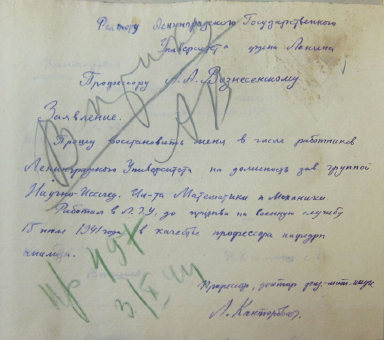 Ректору Ленинградского Государственного
Университета ордена Ленина
Профессору А. А. Вознесенскому
Заявление.
Прошу восстановить меня в числе работников
Ленинградского Университета на должность зав группой
Научно-Исслед. Ин-та Математики и Механики
Работал в Л.Г.У. до призыва на военную службу
15 июля 1941 года в качестве профессора кафедры
анализа.
Профессор, доктор физ-мат. наук
Л. Канторович